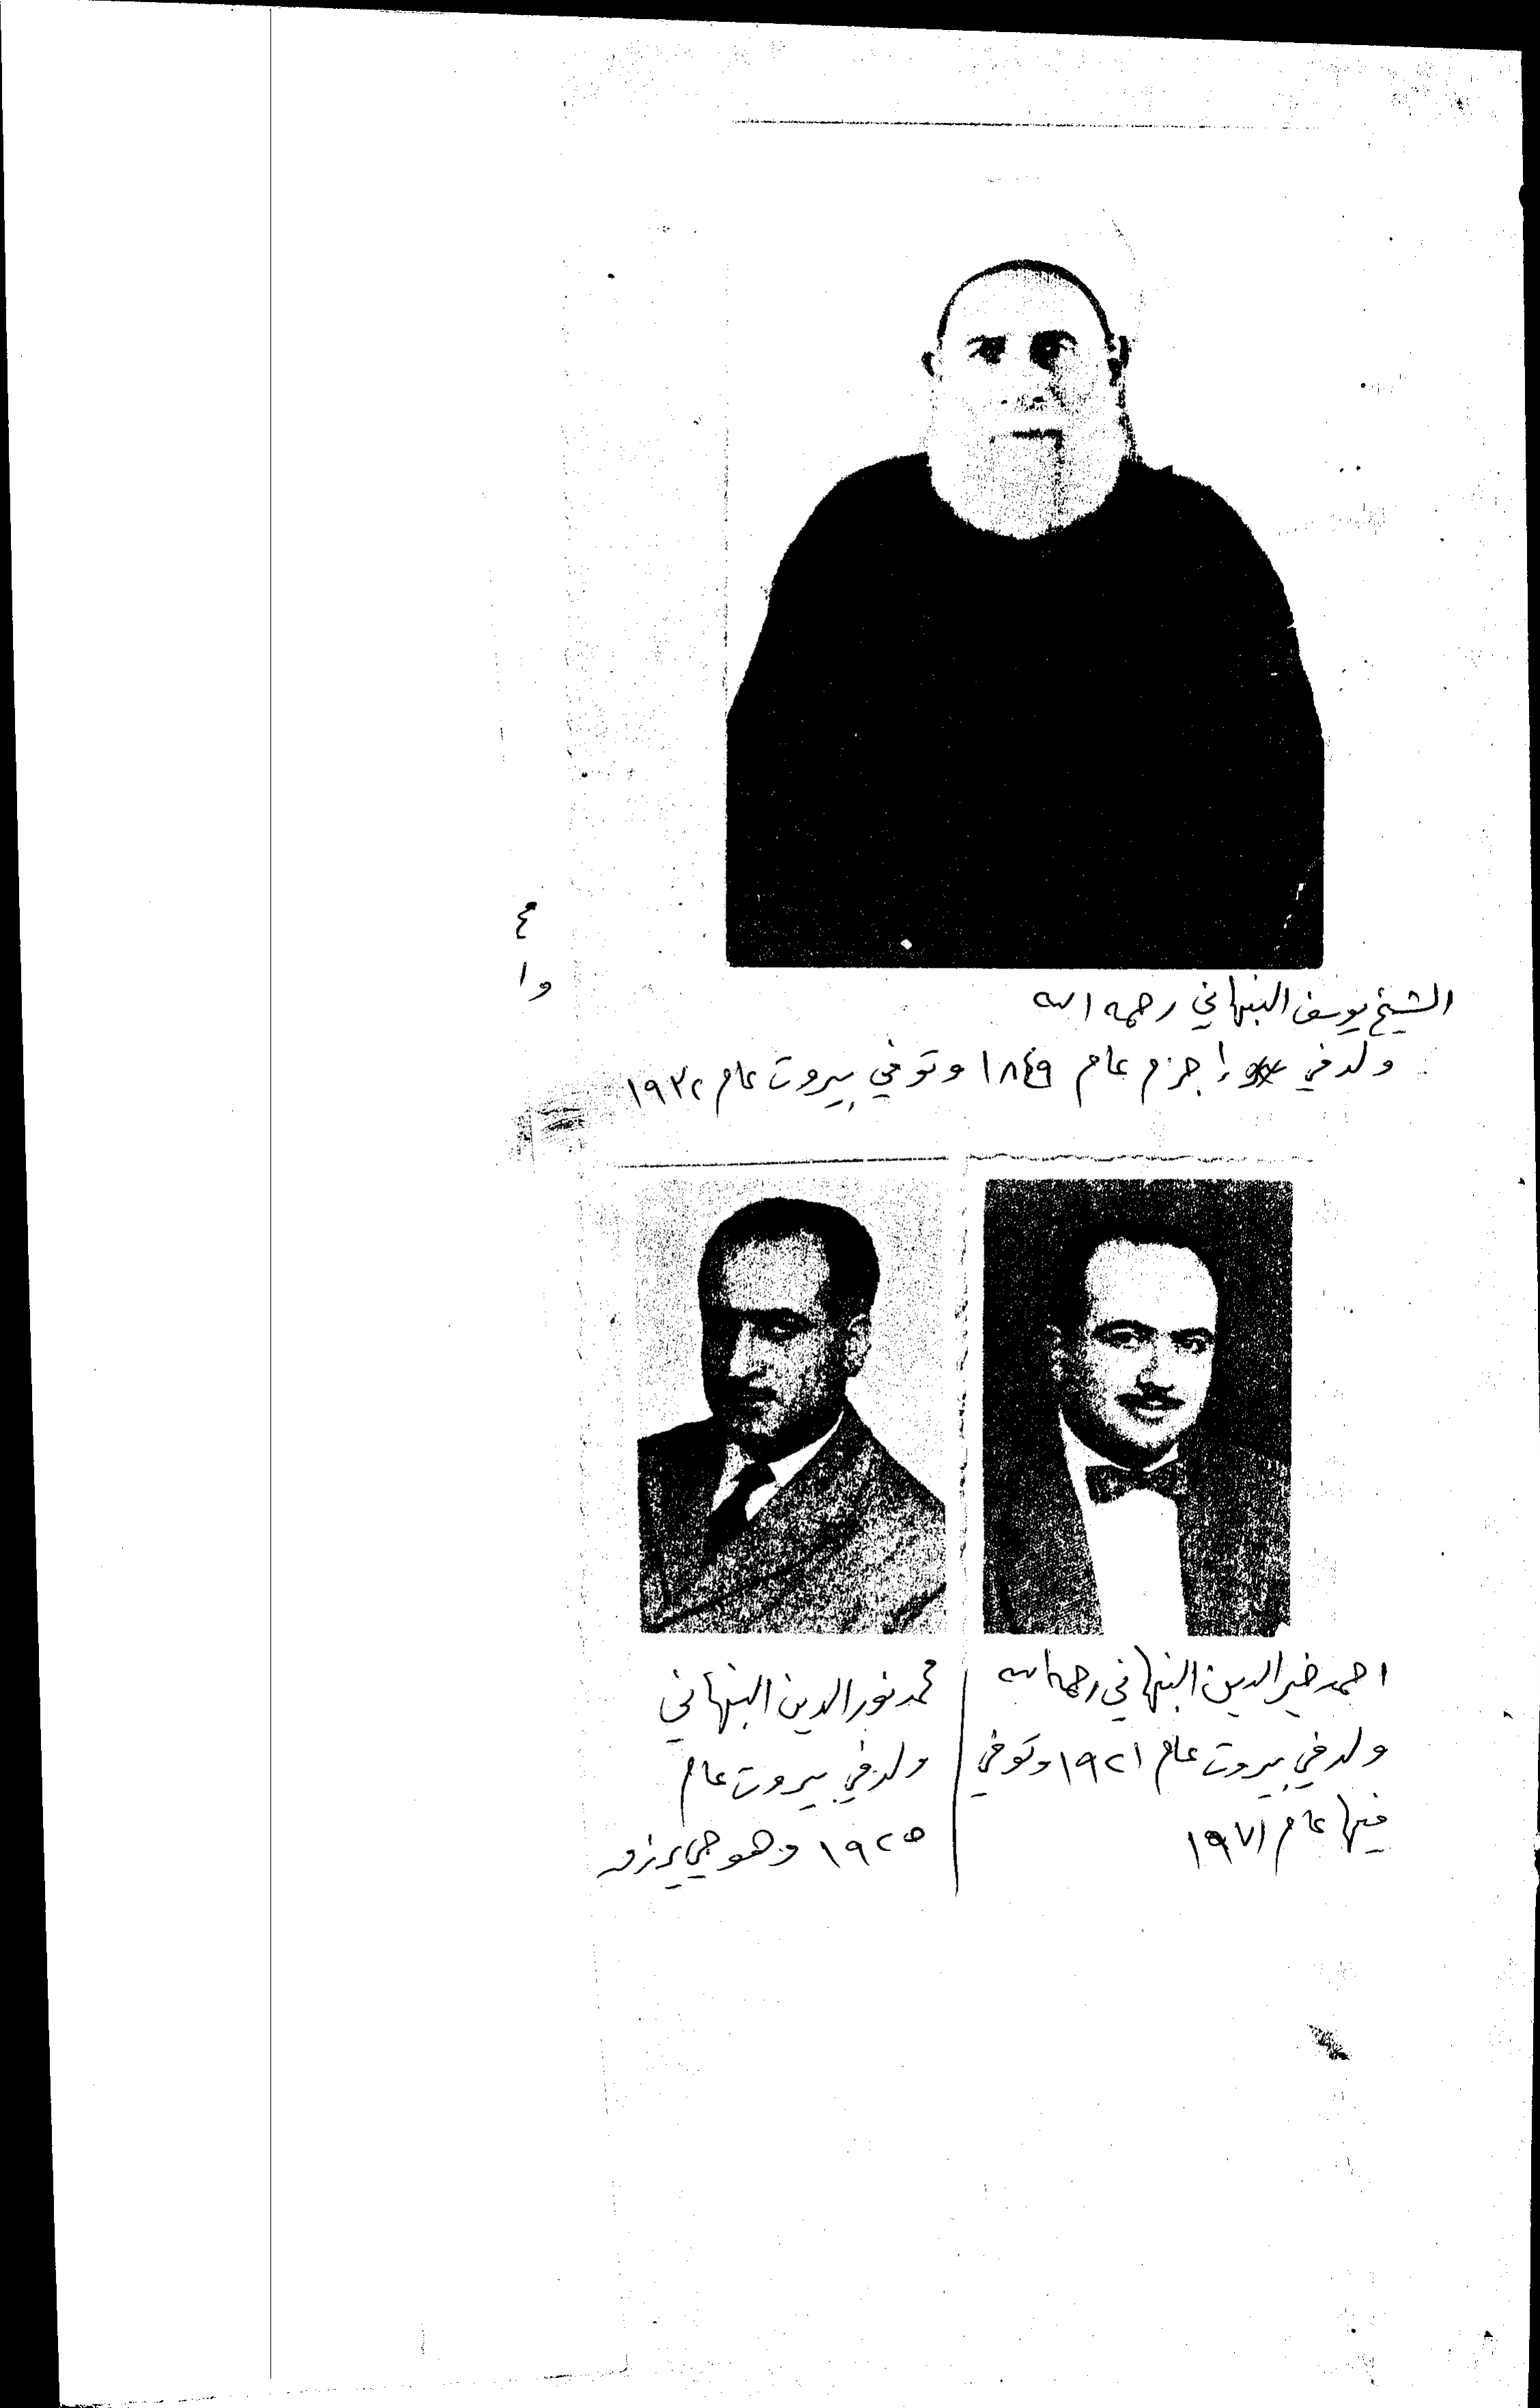 الشيخ يوسف النبهاني رحمه الله
ولد في إجزم عام ١٨٤٩ وتوفي بيروت عام ١٩٣٢
احمد خير الدين النبهاني رحمه الله
ولد في بيروت عام ١٩٢١ وتوفي
فيها عام ١٩٧١
محمد نور الدين النبهاني
ولد في بيروت عام
١٩٢٥ وهو حي يرزق
٤
وا